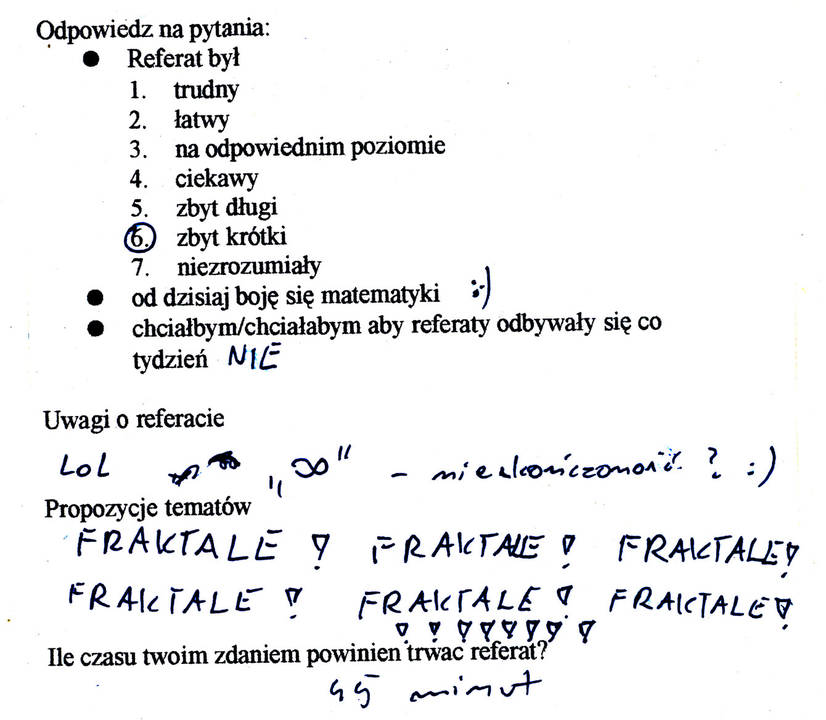 Odpowiedz na pytania:
● Referat był
1. trudny
2. łatwy
3. na odpowiednim poziomie
4. ciekawy
5. zbyt długi
6. zbyt krótki
7. niezrozumiały
● od dzisiaj boję się matematyki :-)
● chciałbym/chciałabym aby referaty odbywały się co
tydzień NIE
Uwagi o referacie
LOL „∞" - nieskończoność? :)
Propozycje tematów
FRAKTALE! FRAKTALE! FRAKTALE!
FRAKTALE! FRAKTALE! FRAKTALE!
! ! ! ! ! ! ! !
Ile czasu twoim zdaniem powinien trwać referat?
45 minut